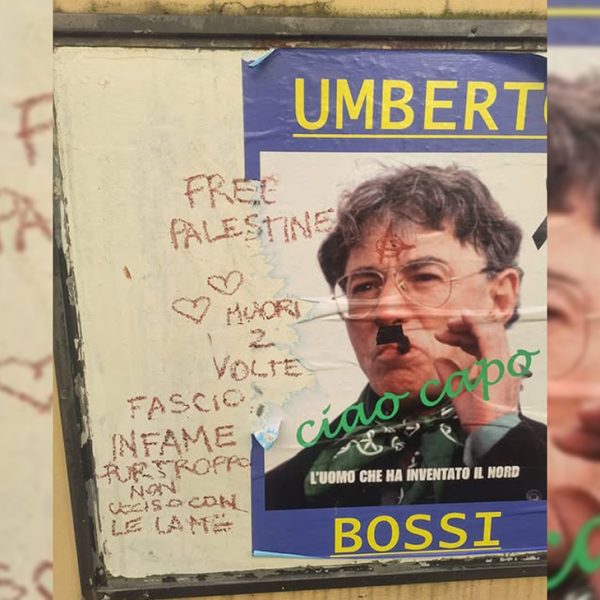 UMBERTO
FREE
PALESTINE
MUORI
2
VOLTE
FASCIO
INFAME
PURTROPPO
NON
UCCISO CON
LE LAME
ciao capo
L'UOMO CHE HA INVENTATO IL NORD
BOSSI